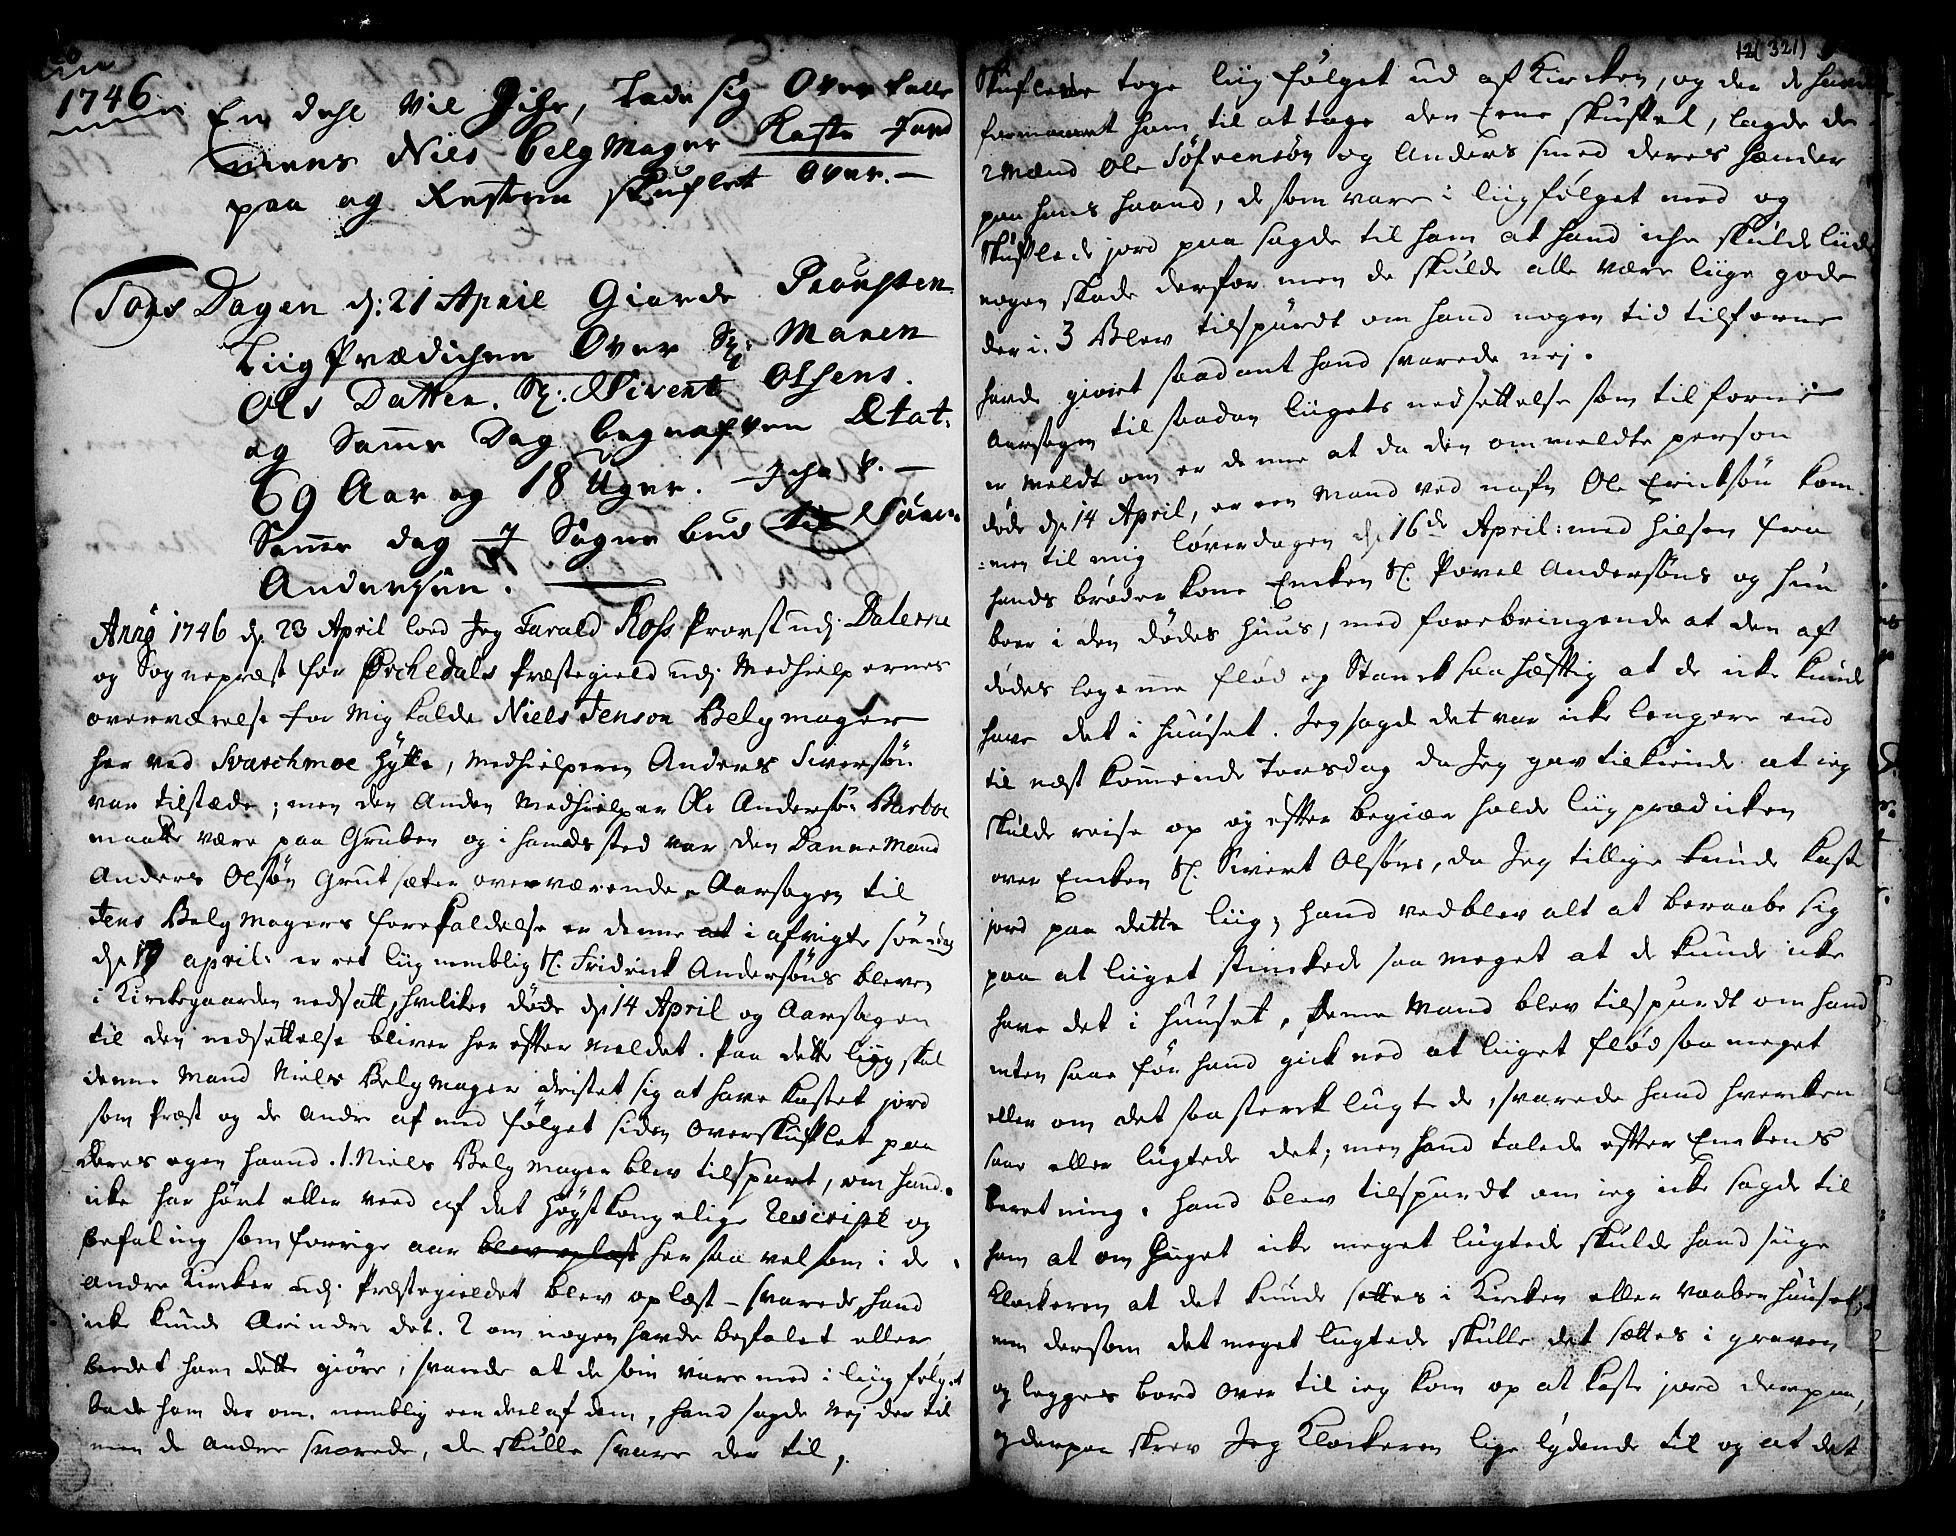 1746
En dehl vil sige, lade sig over talle
mens Niels belg Mager Kaste Jord
paa og Resten skuflet over.
Tors Dagen d: 21 April Giorde Prousten
Liig Prædichen Over Sl: Maren
Ols Datter. Sl: Sivert Olsens.
og Same Dag begrafven Ætat:
69 Aar og 18 Uger.
Samme dag Sogne bud til Sören
Andersen.
Anno 1746 d. 23 April lod Jeg Tarald Ross Provst udj Dalerne
og Sognepræst for Orchedals Præstegield udj Medhielpernes
overværelse for Mig kalde Niels Jenson Belgmager
her ved Svarchmoe Hÿtte, Medhielperen Anders Siversön
var tilstæde; men den Anden Medhielper Ole Andersön Barboe
maatte være paa Gruben og i hands sted var den Danne Mand
Anders Olsön Grutsæter overværende. Aarsagen til
Jens Belg Magers forekaldelse er denne at i afvigte söndag
d. 17 april: er et liig nemblig Sl. Fridrick Andersöns bleven
i Kirckegaarden nedsatt, hvilken döde d. 14 April og Aarsagen
til den nedsettelse bliver her efter Meldet. Paa dette liig skal
denne Mand Niels Belg Mager dristet sig at have kastet jord
som Præst og de andre af med fölget siden overskuflet paa
deres egen haand. 1. Niels Belg Mager blev tilspurt, om hand
icke har hört eller veed af det Högstkongelige Rescript og
befaling som forrige aar blev oplæst her saa vel som i de
andre Kircker udj Præstegieldet blev oplæst - svarede hand
icke kunde Erindre det. 2 om nogen havde befalet eller
beedet ham dette giöre, svarede at de som vare med i liig fölget
bade ham der om. nemblig een deel af dem, hand sagde Nej der til
men de andre svarede, de skulle svare der til,
12(321)
skuflene toge liig fölget ud af Kircken, og der de havde
formaaet ham til at tage den Eene skuffel, lagde de
2 Mænd Ole Söfrensön og Anders smed deres hænder
paa hans haand, de som vare i liigfölget med og
skuflede jord paa sagde til ham at hand iche skulde liide
nogen skade derfor men de skulde alle være liige gode
der i. 3 Blev tilspurdt om hand nogen tid tilforne
havde giort saadant hand svarede nej.
Aarsagen til saadan liigets nedsettelse som tilforne
er meldt om er denne at da den ommeldte person
döde d. 14 April, er een Mand ved nafn Ole Ericksön kom-
:men til mig löverdagen d. 16de April: med hilsen fra
hands bröder kone Encken Sl. Povel Andersöns og hun
boer i den dödes huus, med forebringende at den af
dödes legeme flöd og Stanck saa hæftig at de icke kunde
have det i huuset. Jeg sagde det var icke lengere end
til næst kommende Torsdag da Jeg gav tilkiende at jeg
skulde reise op og efter begiær holde liig prædicken
over Encken Sl. Sivert Olsöns, da Jeg tillige kunde kaste
jord paa dette liig; hand vedblev alt at beraabe sig
paa at liiget stinckede saa meget at de kunde icke
have det i huuset. Denne Mand blev tilspurdt om hand
enten saae för hand gick ned at liiget flöd saa meget
eller om det saa sterck lugtede, svarede hand hvercken
saae eller lugtede det; men hand talede efter Enckens
beretning. hand blev tilspurdt om jeg icke sagde til
ham at om liiget icke meget lugtede skulde hand siige
Klockeren at det kunde settes i Kircken eller vaabenhuuset,
men dersom det meget lugtede skulle det sættes i graven
og legges bord over til jeg kom op at kaste jord derpaa,
og derpaa skrev Jeg Klockeren lige lydende til og at det